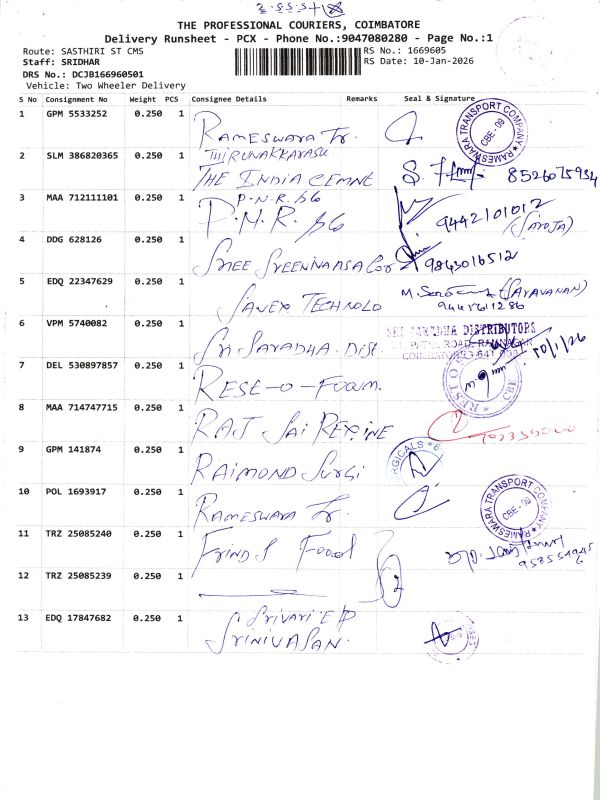 THE PROFESSIONAL COURIERS, COIMBATORE
Delivery Runsheet - PCX - Phone No.:9047080280 - Page No.:1
Route: SASTHIRI ST CMS
RS No.: 1669605
Staff: SRIDHAR
RS Date: 10-Jan-2026
DRS No.: DCJB166960501
Vehicle: Two Wheeler Delivery
S No Consignment No Weight PCS Consignee Details Remarks Seal & Signature
1 GPM 5533252 0.250 1 RAMESWARA Tr.
RAMESWARA TRANSPORT COMPANY CBE-09
THIRUNAKKARASU
2 SLM 386820365 0.250 1 THE INDIA CEMNT 8526075934
3 MAA 712111101 0.250 1 P.N.R. &G
P.N.R. &G 9442101012
(SAROJA)
4 DDG 628126 0.250 1 SHEE SREENIVAASA COR 9843016512
5 EDQ 22347629 0.250 1 JANEX TECHNOLO (SARAVANAN)
6 VPM 5740082 0.250 1 SRI SARADHA DIST
SRI SARADHA DISTRIBUTORS
ROAD, RAMNAGAR
COIMBATORE-641 009
10/1/26
7 DEL 530897857 0.250 1 RESE-O-FOAM.
CBE
8 MAA 714747715 0.250 1 RAJ SAI REXINE
9 GPM 141874 0.250 1 RAIMOND SURGI
SURGICALS
10 POL 1693917 0.250 1 RAMESWARA Tr.
RAMESWARA TRANSPORT COMPANY CBE-09
11 TRZ 25085240 0.250 1 FRINDS FOOD
12 TRZ 25085239 0.250 1
13 EDQ 17847682 0.250 1 SRIVARI EP
SRINIVASAN.